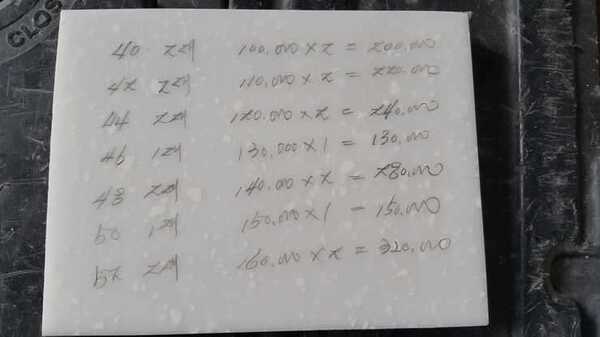 CLOS
40 2개 100.000 x 2 = 200.000
42 2개 110.000 x 2 = 220.000
44 2개 120.000 x 2 = 240.000
46 1개 130.000 x 1 = 130.000
48 2개 140.000 x 2 = 280.000
50 1개 150.000 x 1 = 150.000
52 2개 160.000 x 2 = 320.000